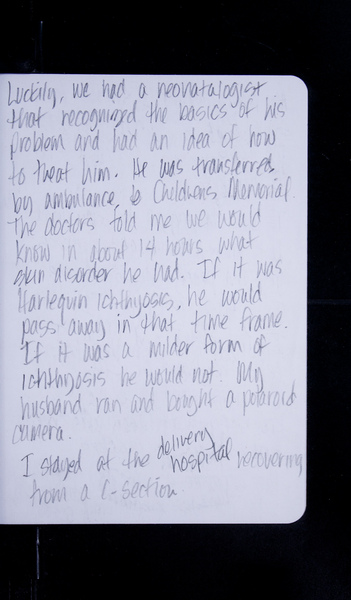 Luckily, we had a neonatalogist
that recognized the basics of his
problem and had an idea of how
to treat him. He was transferred
by ambulance to Childrens Memorial.
The doctors told me we would
know in about 14 hours what
skin disorder he had. If it was
Harlequin ichthyosis, he would
pass away in that time frame.
If it was a milder form of
ichthyosis he would not. My
husband ran and bought a polaroid
camera.
I stayed at the delivery
hospital recovering
from a C-section